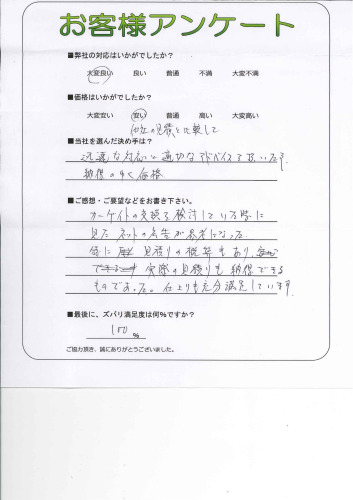 お客様アンケート
■弊社の対応はいかがでしたか？
大変良い 良い 普通 不満 大変不満
■価格はいかがでしたか？
大変安い 安い 普通 高い 大変高い
他社の見積と比較して
■当社を選んだ決め手は？
迅速な対応と適切なアドバイスを頂いた事
納得のゆく価格
■ご感想・ご要望などをお書き下さい。
カーゲイトの交換を検討している時に
見たネットの広告が参考になった。
特に 見積りの概算もあり、
実際の見積りも納得できる
ものであった。仕上りも充分満足しています。
■最後に、ズバリ満足度は何％ですか？
100 %
ご協力頂き、誠にありがとうございました。